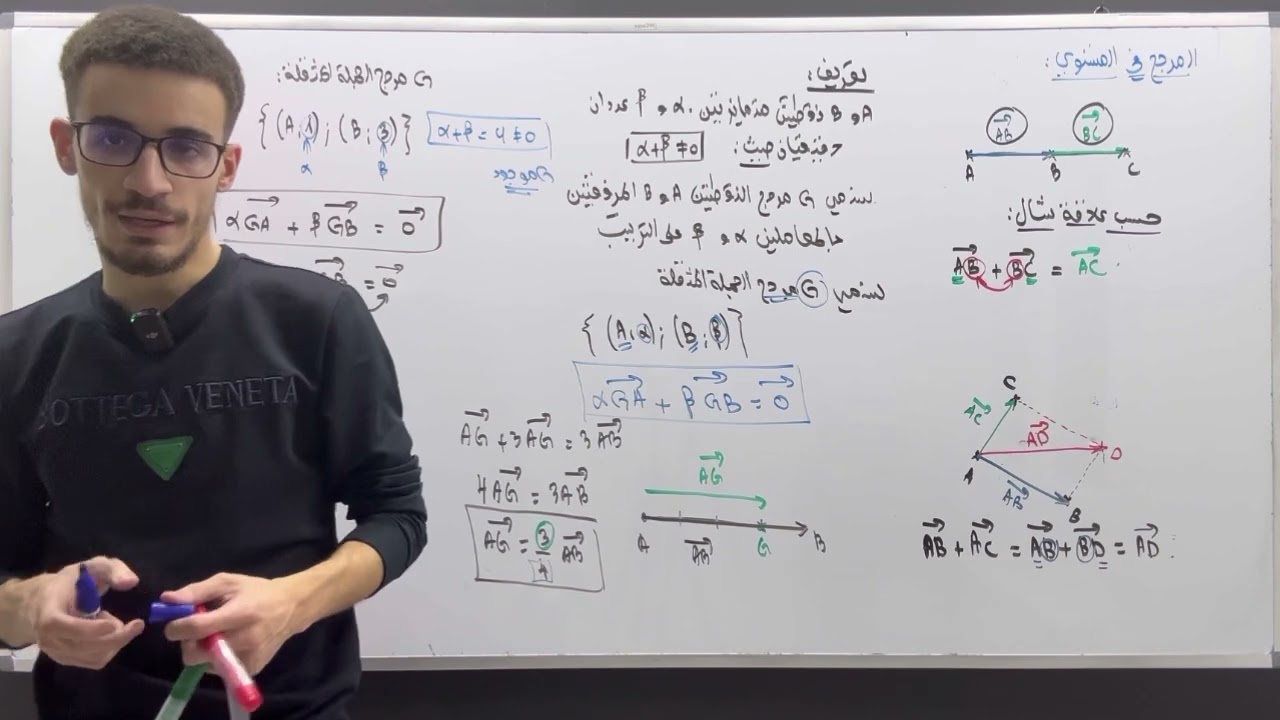 المرجح في المستوي:
AB BC
A B C
حسب علاقة شال:
AB + BC = AC
C
AC
AD
D
A
AB
B
AB + AC = AB + BD = AD
تعريف:
A و B نقطتين متمايزتين. α و β عددان
حقيقيان حيث: α+β≠0
نسمي G مرجح النقطتين A و B المرفقتين
بالمعاملين α و β على الترتيب
نسمي G مرجح الجملة المثقلة
{(A;α);(B;β)}
αGA + βGB = 0
AG + 3AG = 3AB
4AG = 3AB
AG = 3/4 AB
AG
A G B
G مرجح الجملة المثقلة:
{(A;1);(B;3)}
α β
α+β = 4 ≠ 0
G موجود
αGA + βGB = 0
= 0
BOTTEGA VENETA